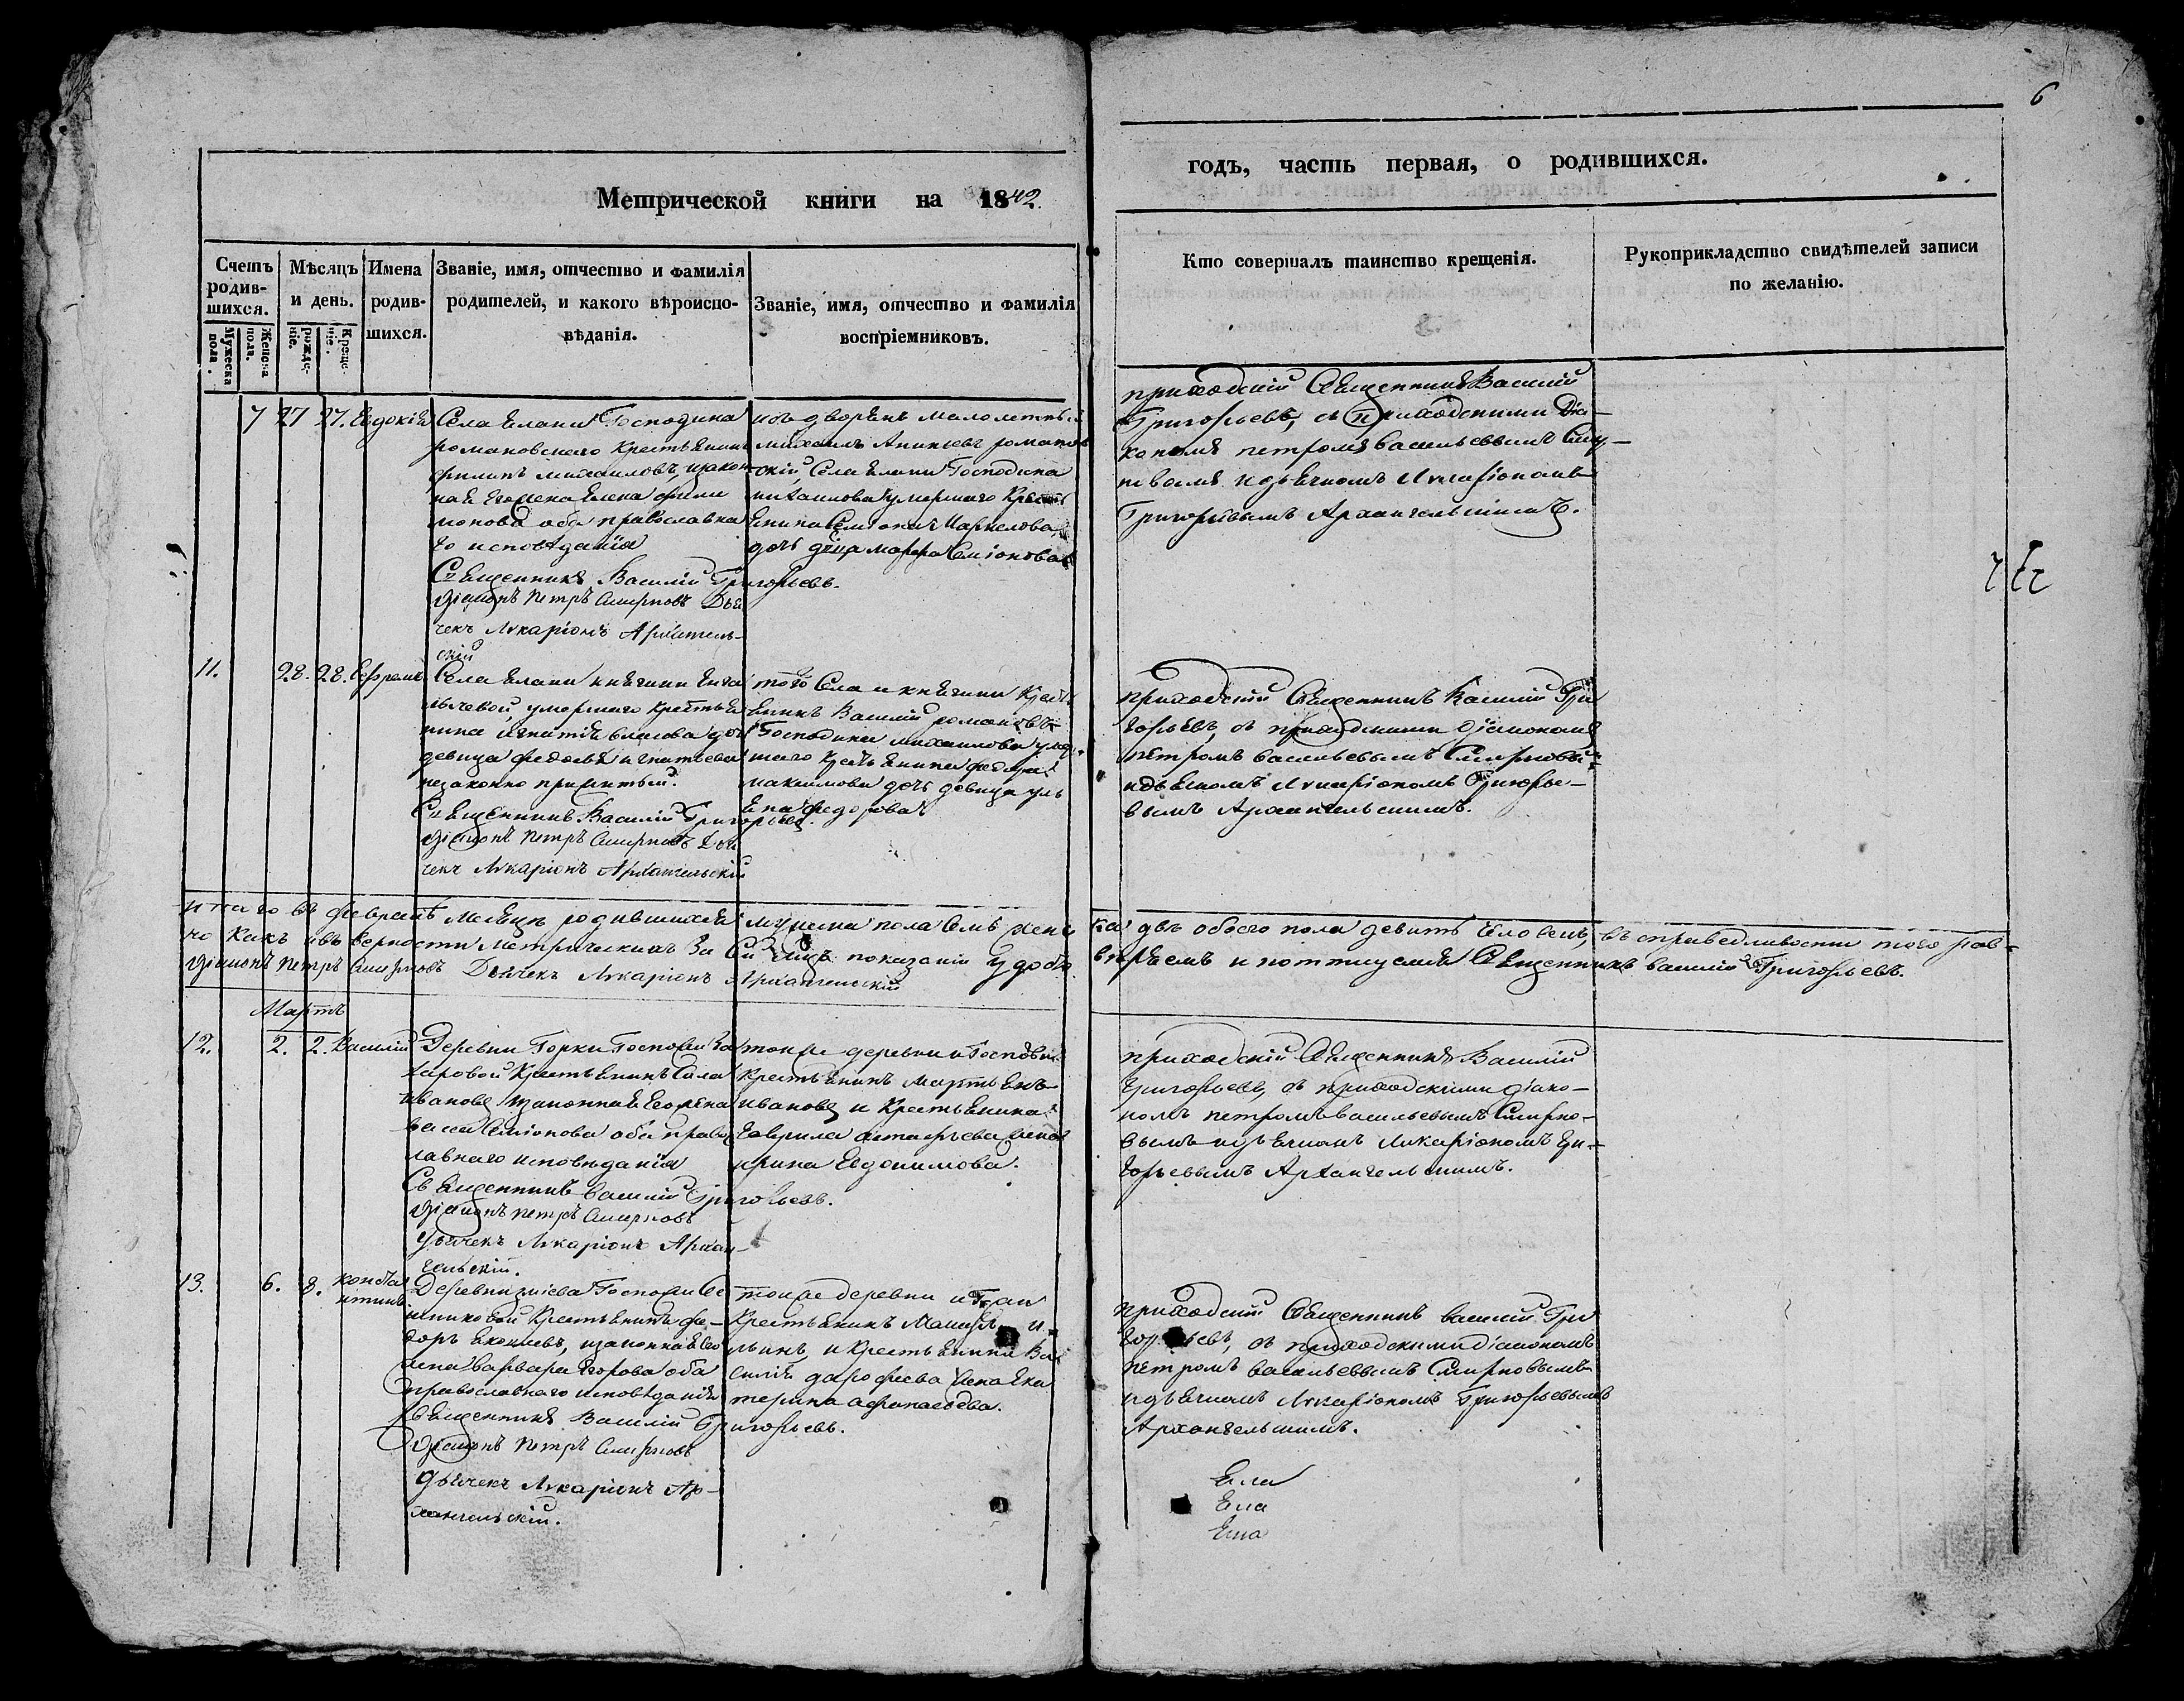 6
Метрической книги на 1842.
годъ, часть первая, о родившихся.
Счетъ родив-шихся.
Мужеска пола.
Женска пола.
Мѣсяцъ и день.
рожде-ніе.
Креще-ніе.
Имена родив-шихся.
Званіе, имя, отчество и фамилія
родителей, и какого вѣроиспо-
вѣданія.
Званіе, имя, отчество и фамилія
воспріемниковъ.
Кто совершалъ таинство крещенія.
Рукоприкладство свидѣтелей записи
по желанію.
7 27 27. Евдокія
Села Елани Господина
романовскаго Крестьянинъ
филипъ михаиловъ, изакон
ная Егожена Елена фили
монова оба православна
го исповѣданія
Священникъ Василій Григорьевъ.
Діаконъ Петръ Смирновъ Дья
чекъ Лукаріонъ Архангель-
скій
изъ дворянъ малолетный
михаилъ романов
скій, Села Елани Господина
михаилова умершаго Кресть
янина Семіона Маркелова
дочь д҃ца марфа Семіонова
приходскій Священникъ Василій
Григорьевъ, съ приходскими Діа-
кономъ петромъ васильевымъ Смир-
новымъ идьячкомъ Лукаріономъ
Григорьевымъ Архангельскимъ.
11. 28. 28. Ефремъ
Села Елани княгини Енга
лычевой, умершаго крестья
нина игнатія дочь
девица федосья игнатьева
незаконно прижитый.
Священникъ Василій Григорьевъ
Діаконъ Петръ Смирновъ Дья
чекъ Лукаріонъ Архангельскій
того Села и княгини кресть
янинъ Василій романовъ
Господина михаилова умер
шаго крестьянина федора
максимова дочь девица уль
яна федорова
приходскій Священникъ Василій Гри
горьевъ, съ приходскими діакономъ
петромъ васильевымъ Смирновы
идьячкомъ Лукаріономъ Григорье-
вымъ Архангельскимъ.
итого въ февралѣ месяцѣ родившихся мужеска пола Семь жен
ска двѣ обоего пола девять Человекъ, въ справедливости того рав-
но какъ ивъ верности метрическихъ За Сей месяцъ показаній удосто
веряемъ и подписуемся Священникъ василій Григорьевъ.
Діаконъ Петръ Смирновъ Дьячекъ Лукаріонъ Архангельскій
Мартъ
12. 2. 2. Василій
Деревни Горки Госпожи За
харовой Крестьянинъ Сава
ивановъ изаконная Егожена
васса Семіонова оба правос
лавнаго исповѣданія
Священникъ василій Григорьевъ.
Діаконъ Петръ Смирновъ
Дьячекъ Лукаріонъ Архан-
гельскій.
тойже деревни и Госпожи
крестьянинъ мартьянъ
ивановъ и Крестьянина
Гаврила жена
ирина Евдокимова.
приходскій Священникъ Василій
Григорьевъ, съ приходскими діако-
номъ петромъ васильевымъ Смирно-
вымъ идьячкомъ Лукаріономъ Гри-
горьевымъ Архангельскимъ.
13. 6. 8. констан
нтинъ
Деревни Госпожи
Крестьянинъ фе-
доръ изаконная Его
жена варвара Егорова оба
православнаго исповѣданія
Священникъ Василій Григорьевъ.
Діаконъ Петръ Смирновъ
Дьячекъ Лукаріонъ Ар-
хангельскій.
тойже деревни и Г҃жи
Крестьянинъ
и крестьянина Ва
силія дарофеева жена Ека
терина афонасьева.
приходскій Священникъ василій Гри
горьевъ, съ приходскими діакономъ
петромъ васильевымъ Смирновымъ
идьячкомъ Лукаріономъ Григорьевымъ
Архангельскимъ.